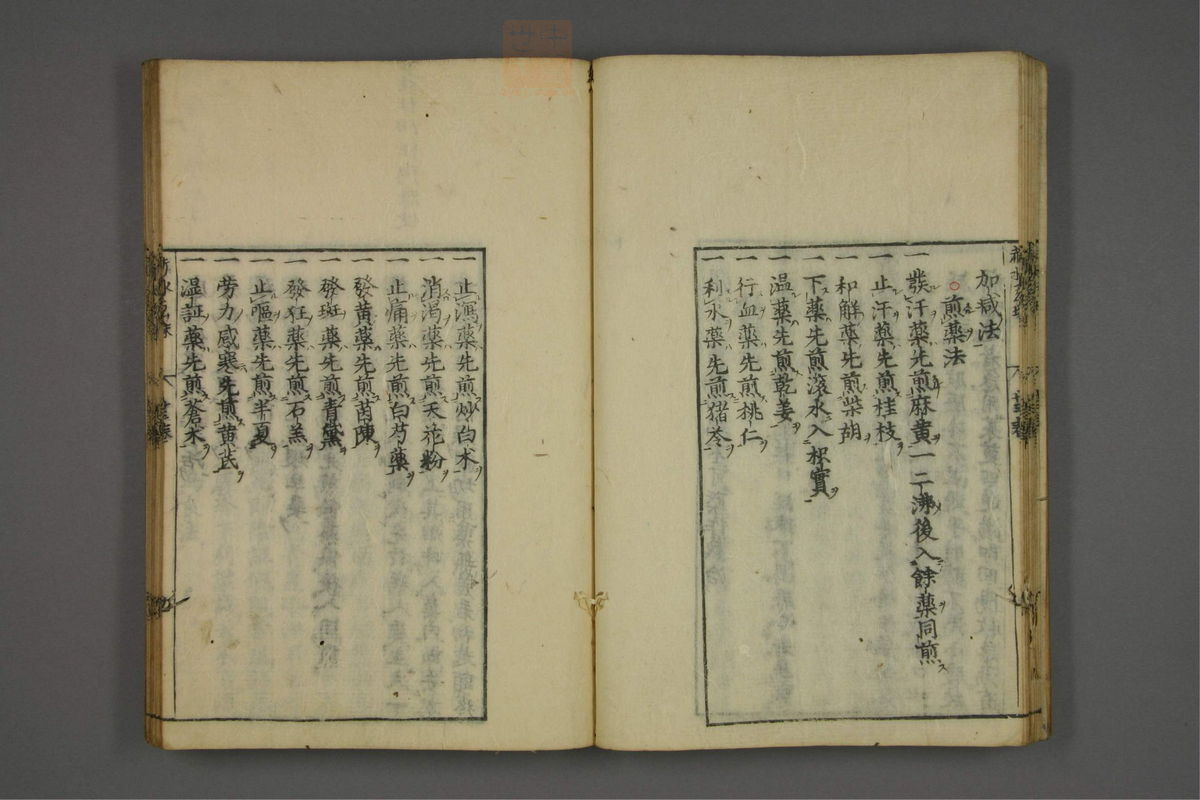 加減法
煎薬法
一發汗薬先煎麻黄一二沸後入餘薬同煎
一止汗薬先煎桂枝
一和解薬先煎柴胡
一下薬先煎滾水入枳實
一温薬先煎乾姜
一行血薬先煎桃仁
一利水薬先煎猪苓
一止瀉薬先煎炒白朮
一消渇薬先煎天花粉
一止痛薬先煎白芍薬
一發黄薬先煎茵陳
一發斑薬先煎青黛
一發狂薬先煎石羔
一止嘔薬先煎半夏
一労力感寒先煎黄芪
一温証薬先煎蒼朮